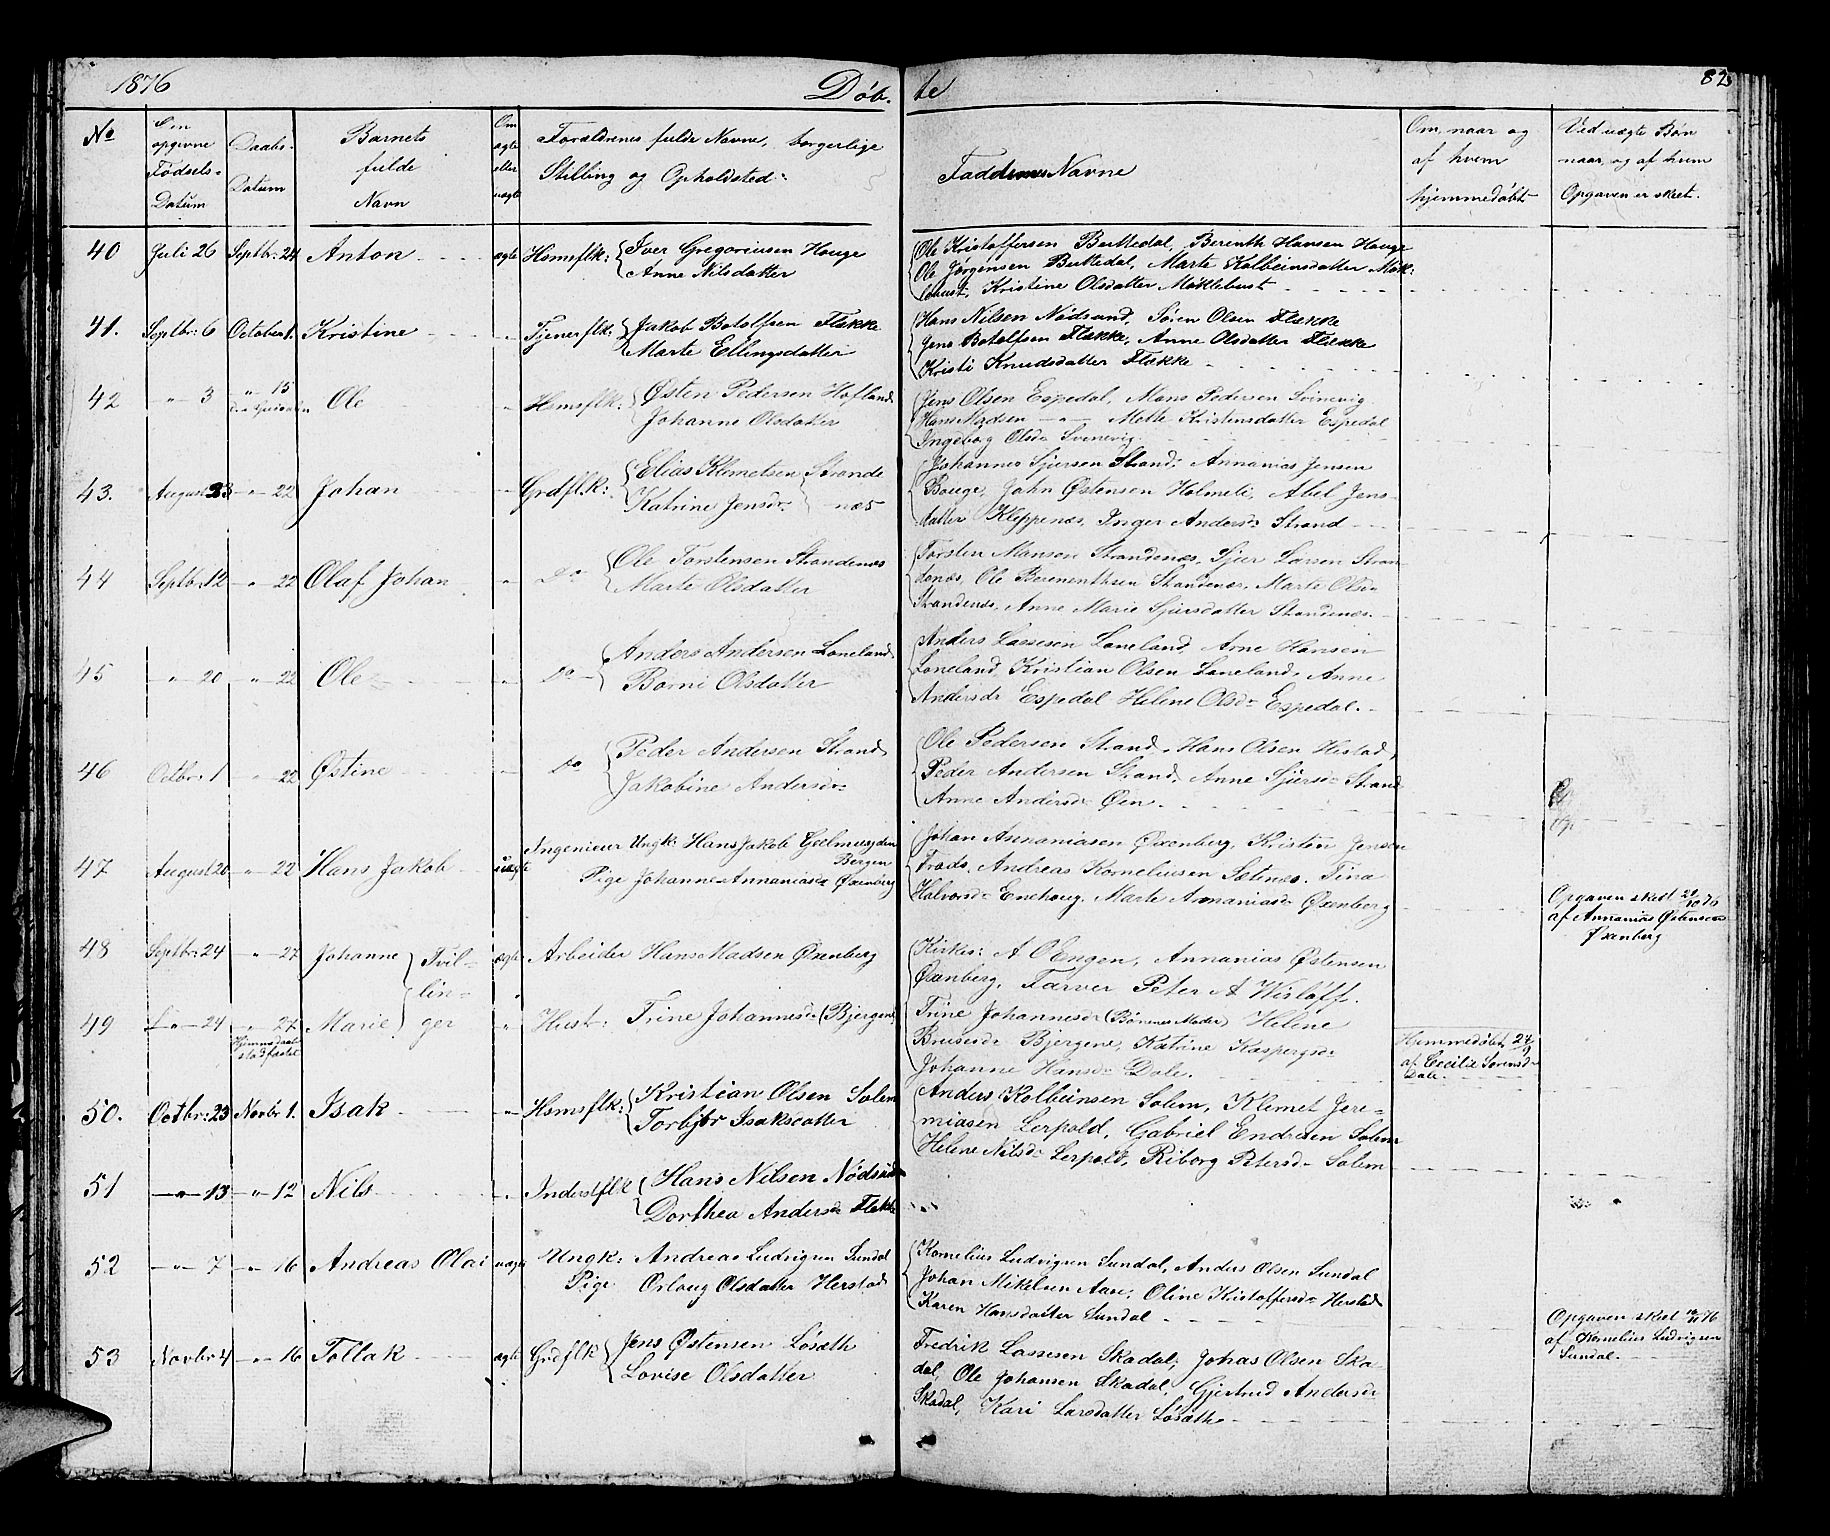 1876 Døb. te 82
No
Den opgivne Fødsels- Datum
Daabs- Datum
Barnets fulde Navn
Om ægte eller uægte
Forældrenes fulde Navne, borgerlige
Stilling og Opholdsted
Faddernes Navne
Om, naar og af hvem hjemmedøbt
Ved uægte Børn naar, og af hvem Opgaven er skeet.
40 Juli 26 Septbr: 24 Anton ægte Hsmsflk: Iver Gregoriusen Hauge
Anne Nilsdatter
Ole Kristoffersen Buttedal, Berenth Hansen Hauge
Ole Jørgensen Buttedal, Marte Kolbeinsdatter Møk-
lebust, Kristine Olsdatter Møklebust
41. Septbr: 6 October 1. Kristine " Tjenerflk: Jakob Botolfsen Flekke
Marte Ellingsdatter
Hans Nilsen Nødsund, Søren Olsen Flekke
Jens Botolfsen Flekke, Anne Olsdatter Flekke
Kristi Knudsdatter Flekke
42 " 3 " 15 Ole " Hsmsflk: Østen Pedersen Hofland
Johanne Olsdatter
Jens Olsen Espedal, Mons Pedersen Svinevig
Hans Madsen " Mette Kristensdatter Espedal
Ingeborg Olsdr Svenevig
43. August 23 " 22 Johan " Grdflk: Elias Klemetsen Strande
Katrine Jensdr næs
Johannes Sjursen Strand, Annanias Jensen
Bouge, John Østensen Holmeli, Abel Jens-
datter Kleppenes, Inger Andersdr Strand
44 Septbr: 12 " 22 Olaf Johan " Do Ole Torstensen Strandenæs
Marte Olsdatter
Torsten Monsen Strandenæs, Sjur Larsen Stran
denæs, Ole Berenthsen Strandenæs, Marte Olsdr
Strandenæs, Anne Marie Sjursdatter Strandenæs
45 " 20 " 22 Ole " Do Anders Andersen Loneland
Borni Olsdatter
Anders Lassesen Loneland, Arne Hansen
Loneland, Kristian Olsen Loneland, Anne
Andersdr Espedal Helene Olsdr Espedal.
46 Octbr: 1 " 22 Østine " Do Peder Andersen Strand
Jakobine Andersdr
Ole Pedersen Strand, Hans Olsen Hestad,
Peder Andersen Strand, Anne Sjursdr Strand
Anne Andersdr Øen
47 August 20 " 22 Hans Jakob uægte Ingenieur Ungk: Hans Jakob Geelmuyden
Bergen
Pige Johanne Annaniasdr Oxenberg
Johan Annaniasen Oxenberg, Kristen Jensen
Frads, Andreas Korneliusen Sætenes, Tina
Halvorsdr Enehoug, Marte Annaniasdr Oxenberg
Opgaven skedt 22/10 76
af Annanias Østensen
Oxenberg
48 Septbr: 24 " 27 Johanne Tvil- ægte Arbeider Hans Madsen Oxenberg
lin-
Kirkes: A O Engen, Annanias Østensen
Oxenberg, Farver Peter A Wisløff.
49 " 24 " 27 Marie ger " Hust: Trine Johannesdr (Bjergene)
Trine Johannesdr (Børnenes Moder) Helene
Bruisersdr Bjergene, Katrine Kaspersdr
Johanne Hansdr Dale.
Hjemmedøbt 24/9
af Cecilie Sørensdr
Dale.
50. Octbr: 23 Novbr 1. Isak " Hsmsflk: Kristian Olsen Solem
Torbjør Isaksdatter
Anders Kolbeinsen Solem, Klemet Jere-
miasen Lerpold, Gabriel Endresen Solem
Helene Nilsdr Lerpold, Riborg Petersdr Solem
51 " 13 " 12 Nils " Inderstflk Hans Nilsen Nødsund
Dorthea Andersdr Flekke
52 " 7 " 16 Andreas Olai uægte Ungk: Andreas Ludvigsen Sundal
Pige Orloug Olsdatter Herstad
Kornelius Ludvigsen Sundal, Anders Olsen Sundal
Johan Mikelsen Aase, Oline Kristoffersdr Herstad
Karen Hansdatter Sundal
Opgaven skedt 76
af Kornelius Ludvigsen
Sundal.
53 Novbr 4 " 16 Tollak ægte Grdflk Jens Østensen Løseth
Lovise Olsdatter
Fredrik Lassesen Skadal, Johas Olsen Ska-
dal, Ole Johansen Skadal, Gjertrud Andersdr
Skadal, Kari Larsdatter Løseth